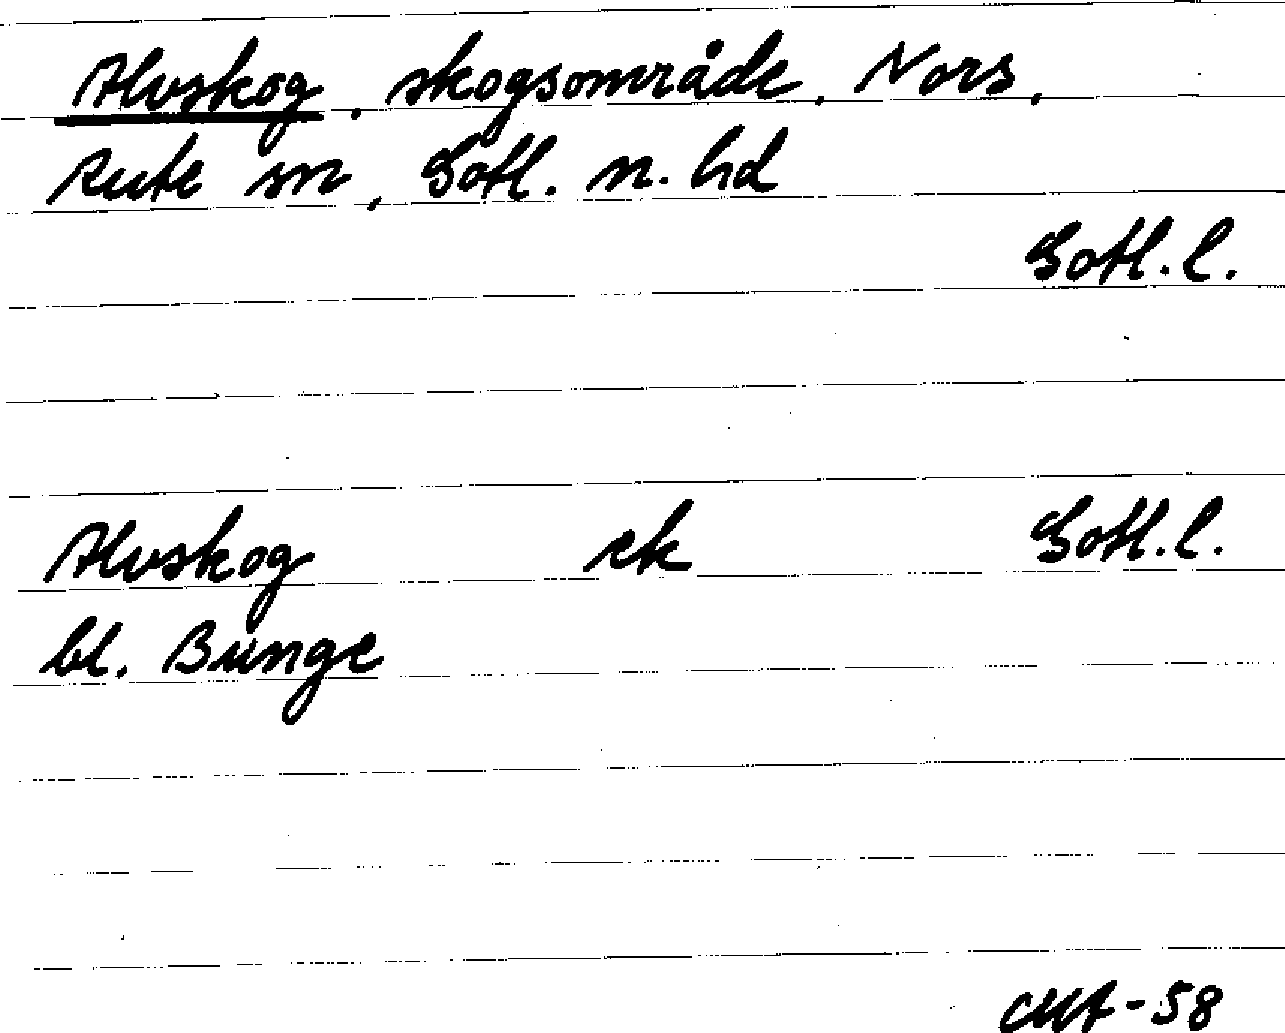 Alvskog, skogsområde, Nors,
Rute sn, Gotl. n. hd
Gotl. l.
Alvskog ek Gotl. l.
bl. Bunge
-58